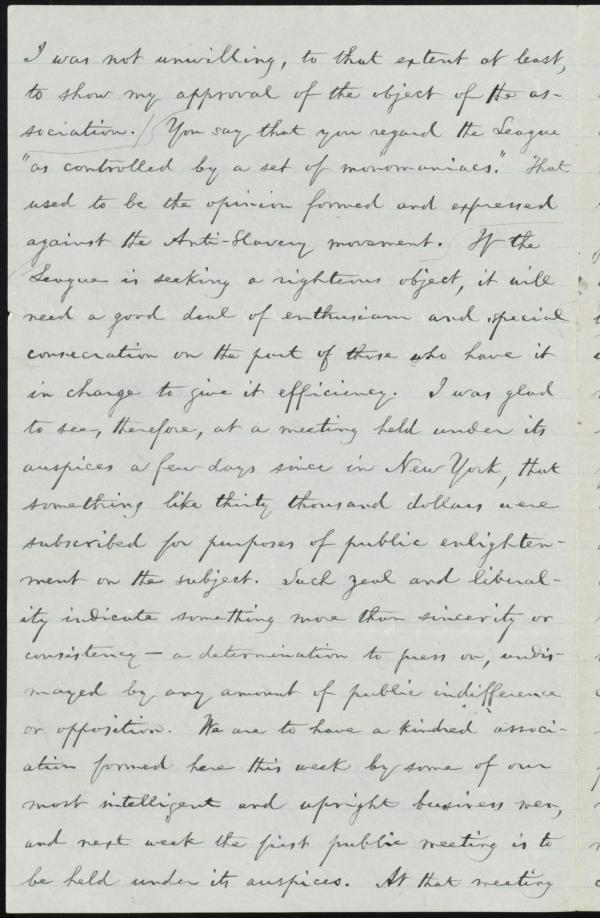 I was not unwilling, to that extent at least,
to show my approval of the object of the as-
sociation. / You say that you regard the League
"as controlled by a set of monomaniacs." That
used to be the opinion formed and expressed
against the Anti-Slavery movement. If the
League is seeking a righteous object, it will
need a good deal of enthusiasm and special
consecration on the part of those who have it
in charge to give it efficiency. I was glad
to see, therefore, at a meeting held under its
auspices a few days since in New York, that
something like thirty thousand dollars were
subscribed for purposes of public enlighten-
ment on the subject. Such zeal and liberal-
ity indicate something more than sincerity or
consistency — a determination to press on, undis-
mayed by any amount of public indifference
or opposition. We are to have a kindred associ-
ation formed here this week by some of our
most intelligent and upright business men,
and next week the first public meeting is to
be held under its auspices. At that meeting